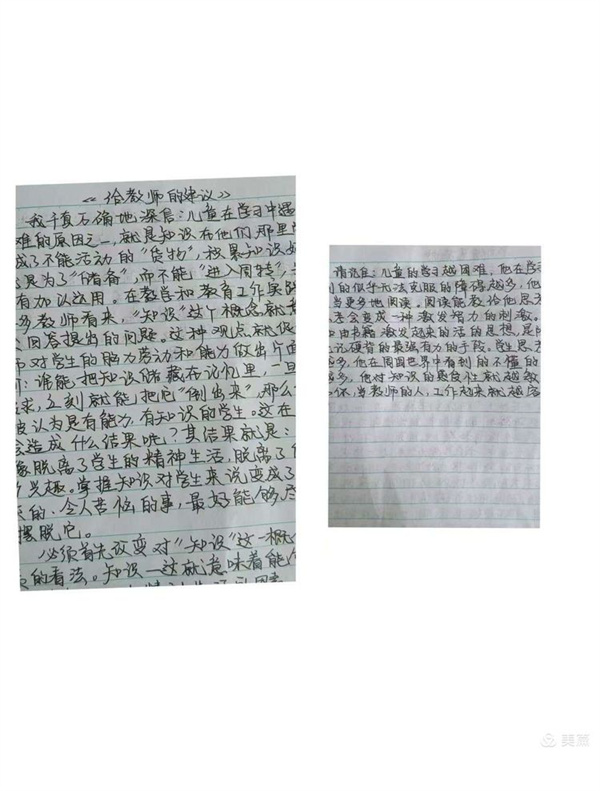 《给教师的建议》
我千真万确地深信:儿童在学习中遇
难的原因之一,就是知识在他们那里
成了不能活动的“货物”,积累知识好
是为了“储备”,而不能“进入周转”,
有加以运用。在教学和教育工作实际
多教师看来,“知识”这个概念就意
回答提出的问题。这种观点就促
师对学生的脑力劳动和能力做出片面
:谁能把知识储藏在记忆里,一旦
求,立刻就能把它“倒出来”,那么
被认为是有能力,有知识的学生。这在
会造成什么结果呢?其结果就是:
象脱离了学生的精神生活,脱离了
兴趣。掌握知识对学生来说变成了
的、令人苦恼的事,最好能够尽
摆脱它。
必须首先改变对“知识”这一概
的看法。知识—这就意味着能
请记住:儿童的学习越困难,他在学习
到的似乎无法克服的障碍越多,他
当更多地阅读。阅读能教给他思考
考会变成一种激发智力的刺激。
和由书籍激发起来的活的思想,是防
记硬背的最强有力的手段。学生思考
越多,他在周围世界中看到的不懂的
越多,他对知识的感受性就越敏
你,当教师的人,工作起来就越容
美篇